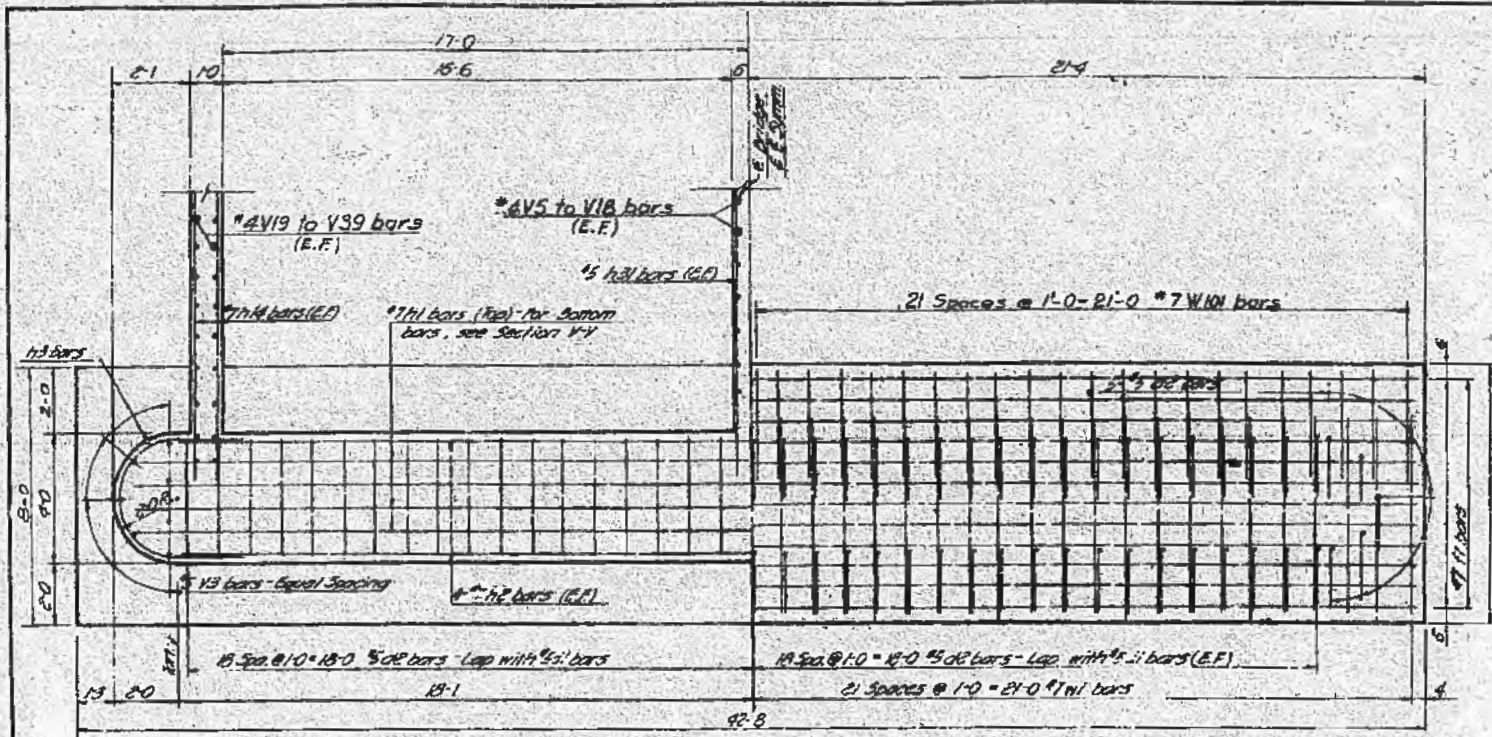 17-0
2-1 1-0 16-6 6 21-4
℄ Bridge
#4V19 to V39 bars
(E.F.)
#4V5 to V18 bars
(E.F.)
#5 h31 bars (E.F.)
#7h14 bars (E.F.)
#7h1 bars (Top)-For Bottom
bars, see Section V-V
21 Spaces @ 1'-0=21'-0 #7 W101 bars
h3 bars
6
2-0
8-0
4-0
2-0
#5 V3 bars-Equal Spacing
h2 bars (E.F.)
bars
6
18 Spa. @ 1-0 = 18-0 #5 d2 bars - Lap with bars
18 Spa. @ 1-0 = 18-0 #5 d2 bars - Lap with bars (E.F.)
21 Spaces @ 1-0 = 21-0 bars
1-3 2-0 18-1 4
42-8